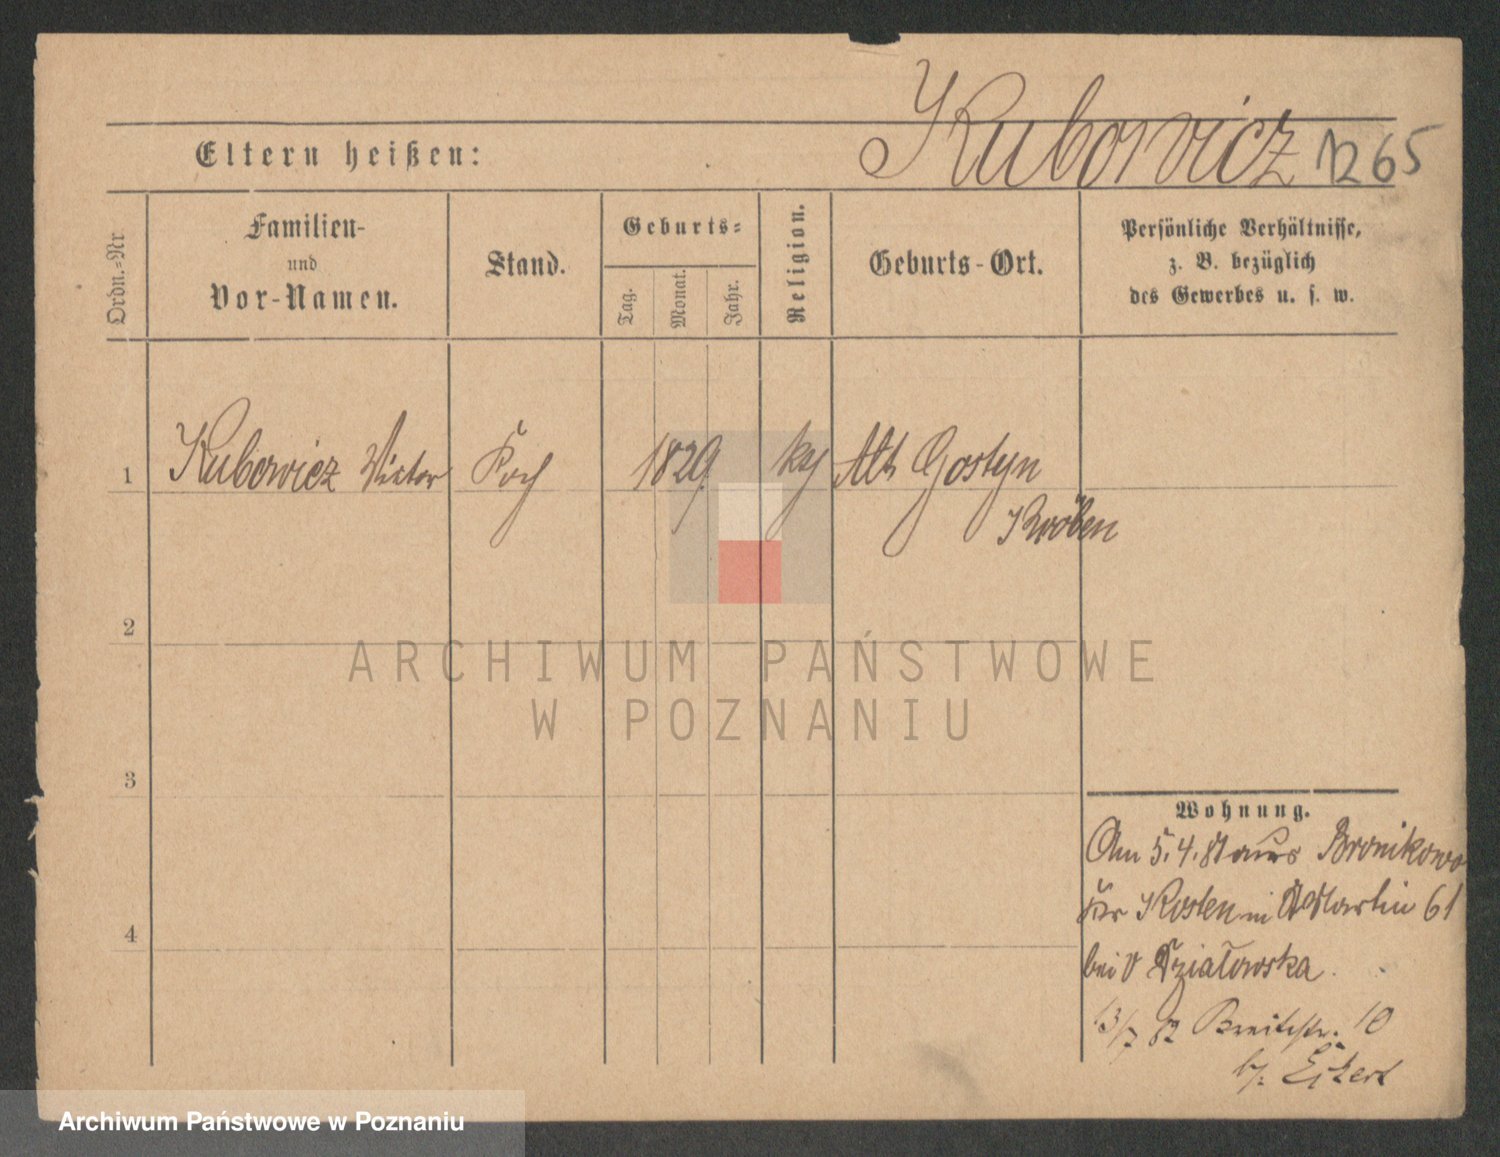 Kubowicz 1265
Eltern heißen:
Ordn.-Nr
Familien-
und
Vor-Namen.
Stand.
Geburts-
Tag.
Monat.
Jahr.
Religion.
Geburts-Ort.
Persönliche Verhältnisse,
z. B. bezüglich
des Gewerbes u. s. w.
1 Kubowicz Wiktor Koch 1829 Alt Gostyn
Kröben
2
3
4
Wohnung.
Am 5.4.81 aus Bronikowo
Kr Kosten in St Martin 61
bei v Dziatowska
13/7 82 Breitestr. 10
b/. Eckert
ARCHIWUM PAŃSTWOWE
W POZNANIU
Archiwum Państwowe w Poznaniu